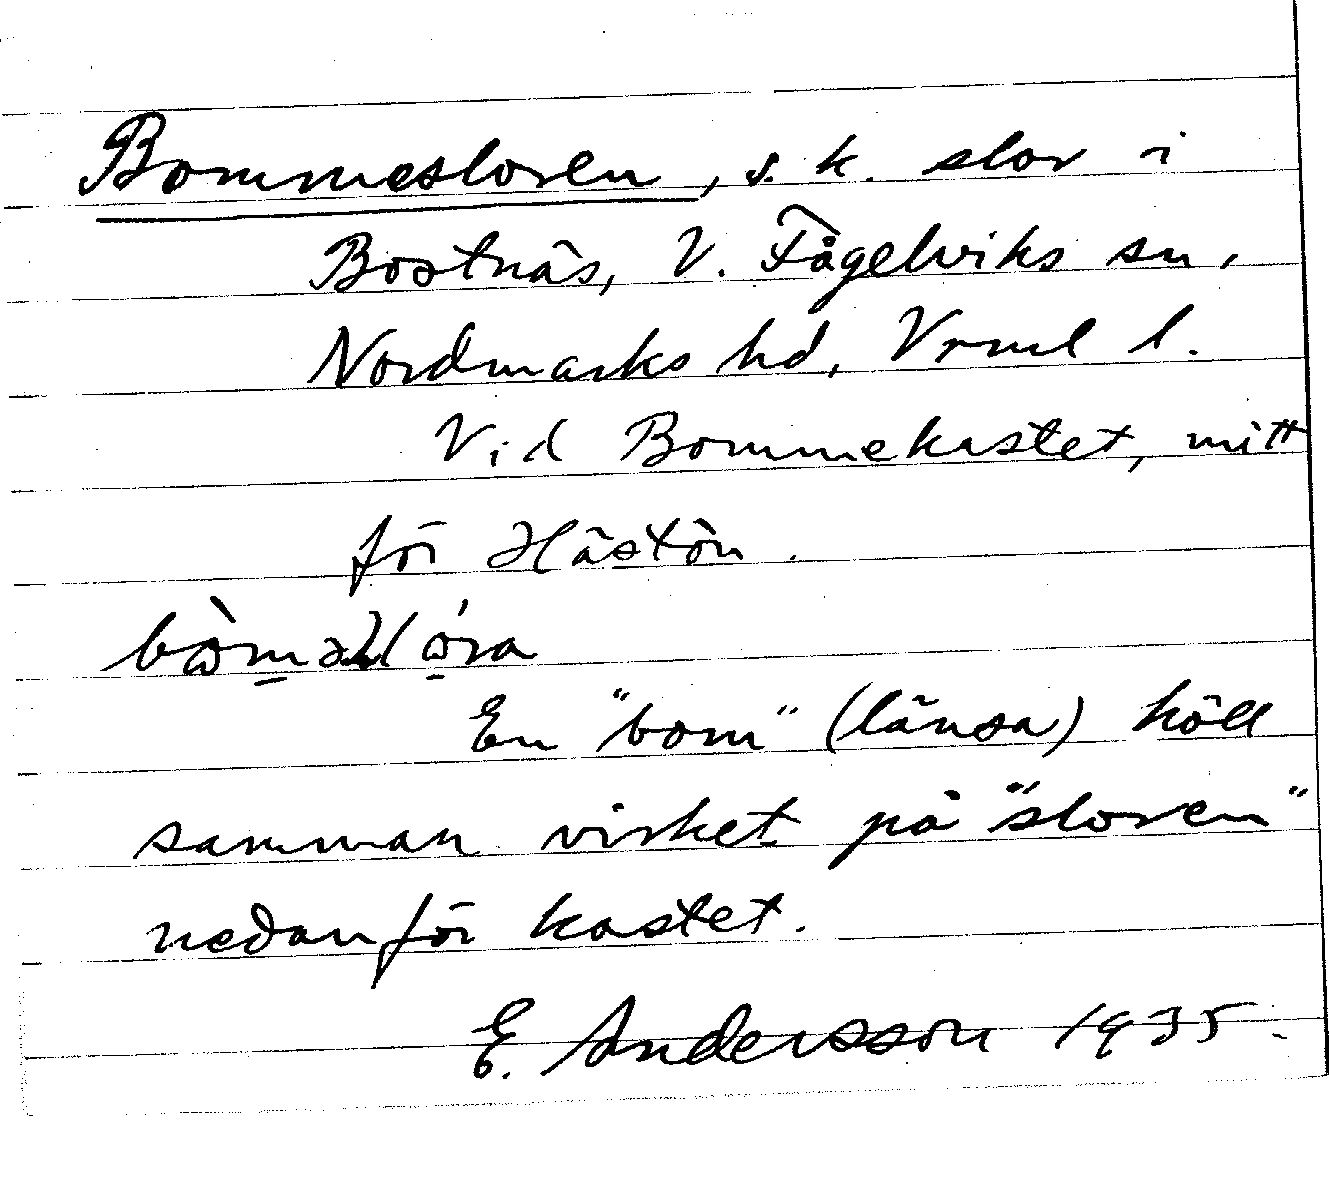 Bommesloren, s. k. slor i
Bostnäs, V. Fågelviks sn,
Nordmarks hd, Vrml l.
Vid Bommekastet, mitt
för Hästön.
En "bom" (länsa) höll
samman virket på "sloren"
nedanför kastet.
E. Andersson 1935.